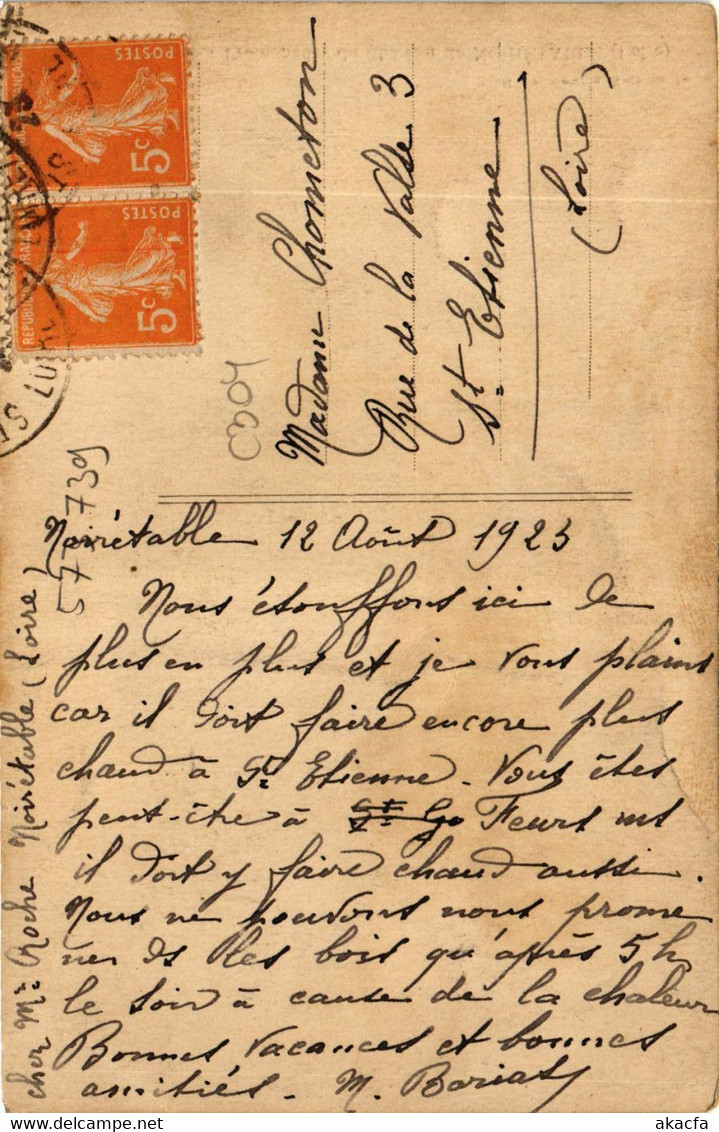 Noirétable 12 Août 1923
Nous étouffons ici de
plus en plus et je vous plains
car il doit faire encore plus
chaud à St Etienne. Vous êtes
peut-être à Feurs ms
il doit y faire chaud aussi.
Nous ne pouvons nous prome
ner ds les bois qu'après 5h
le soir à cause de la chaleur
Bonnes vacances et bonnes
amitiés. M.
chez Me Roche Noirétable (Loire)
Madame Chometon
Rue de la Valse 3
St Etienne
(Loire)
57 739
POSTES
5c
POSTES
5c
www.akacfa.com